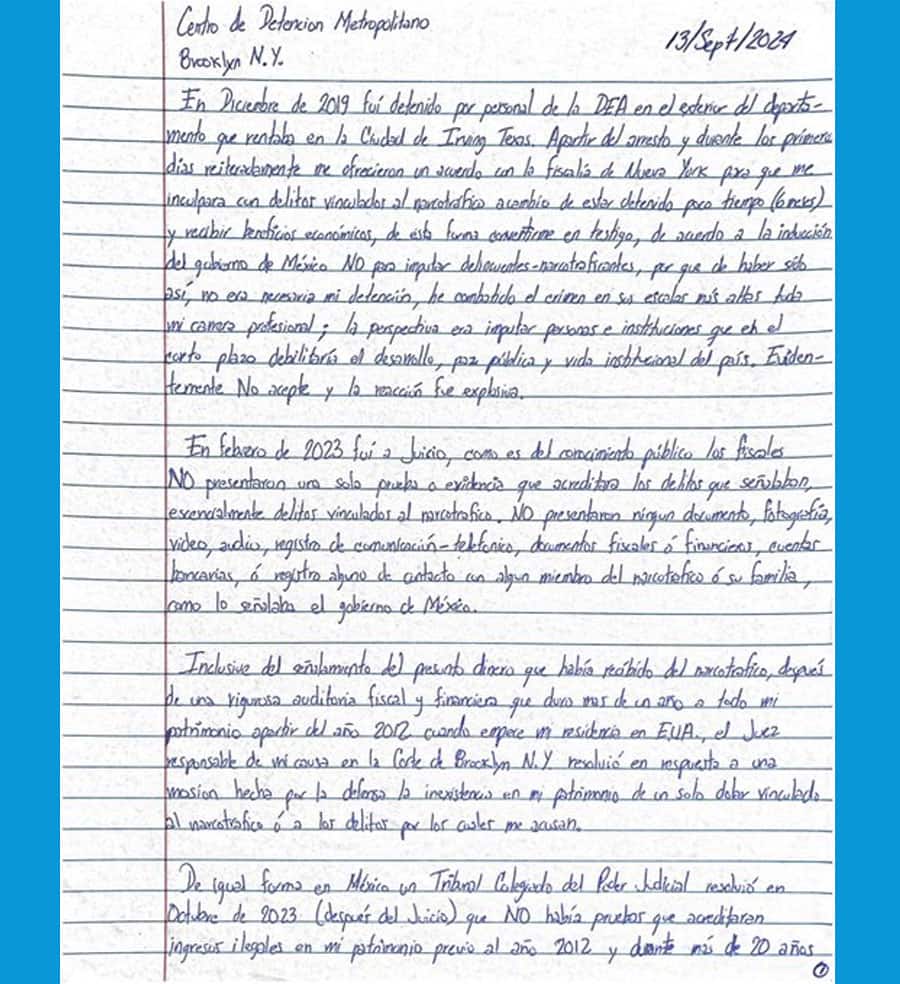 Centro de Detencion Metropolitano
Brooklyn N.Y.
13/Sept/2024
En Diciembre de 2019 fuí detenido por personal de la DEA en el exterior del departa-
mento que rentaba en la Ciudad de Irving Texas. Apartir del arresto y durante los primeros
días reiteradamente me ofrecieron un acuerdo con la fiscalía de Nueva York para que me
inculpara con delitos vinculados al narcotráfico acambio de estar detenido poco tiempo (6 meses)
y recibir beneficios económicos, de ésta forma convertirme en testigo, de acuerdo a la inducción
del gobierno de México NO para imputar delincuentes-narcotraficantes, por que de haber sido
así, no era necesaria mi detención, he combatido el crimen en sus escalas más altas toda
mi carrera profesional; la perspectiva era imputar personas e instituciones que en el
corto plazo debilitaría el desarrollo, paz pública y vida institucional del país. Eviden-
temente No acepte y la reacción fue explosiva.
En febrero de 2023 fuí a Juicio, como es del conocimiento público los fiscales
NO presentaron una sola prueba o evidencia que acreditara los delitos que señalaban,
esencialmente delitos vinculados al narcotrafico. NO presentaron ningun documento, fotografía,
video, audio, registro de comunicación-telefonico, documentos fiscales ó financieros, cuentas
bancarias, ó registro alguno de contacto con algun miembro del narcotrafico ó su familia,
como lo señalaba el gobierno de México.
Inclusive del señalamiento del presunto dinero que había recibido del narcotrafico, después
de una rigurosa auditoria fiscal y financiera que duro mas de un año a todo mi
patrimonio apartir del año 2012 cuando empece mi residencia en E.U.A., el Juez
responsable de mi causa en la Corte de Brooklyn N.Y resolvió en respuesta a una
mosion hecha por la defensa la inexistencia en mi patrimonio de un solo dolar vinculado
al narcotrafico ó a los delitos por los cuales me acusan.
De igual forma en México un Tribunal Colegiado del Poder Judicial resolvió en
Octubre de 2023 (después del Juicio) que NO había pruebas que acreditaran
ingresos ilegales en mi patrimonio previo al año 2012 y durante más de 20 años
1